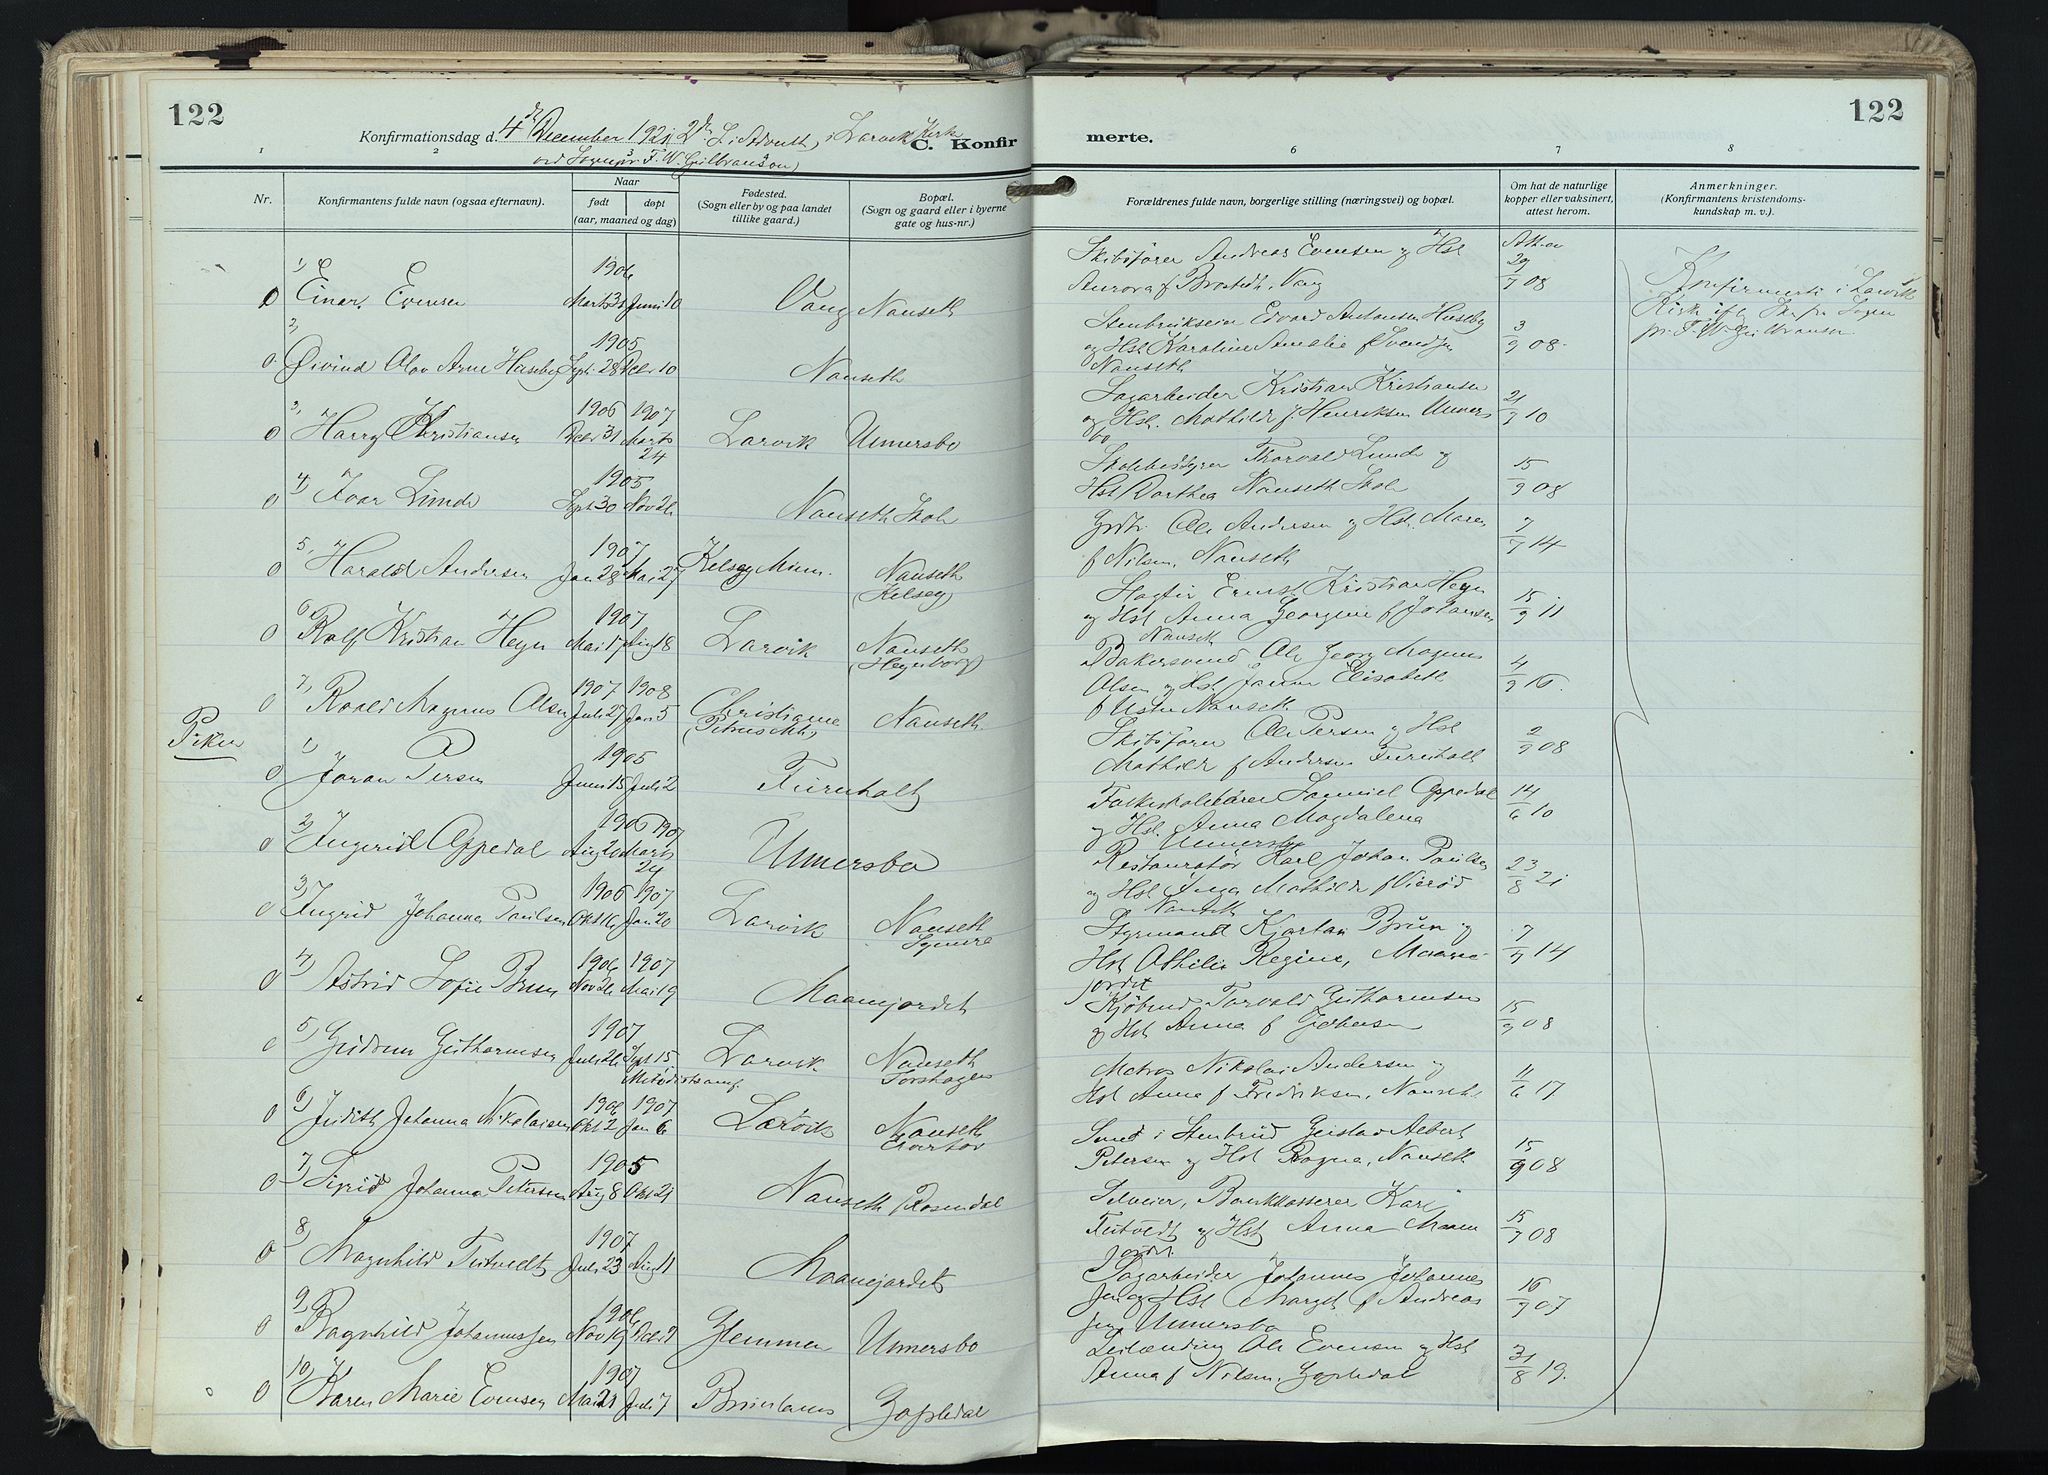 122
Konfirmationsdag d. 4de December 1921 2de S. i Advent, i Larvik Kirke
ved Sognepr. F. W. Gulbranson,
C. Konfir
merte.
122
1 2 3 3 6 7 8
Nr.
Konfirmantens fulde navn (ogsaa efternavn).
Naar
født
døpt
(aar, maaned og dag)
Fødested.
(Sogn eller by og paa landet
tillike gaard.)
Bopæl.
(Sogn og gaard eller i byerne
gate og hus-nr.)
Forældrenes fulde navn, borgerlige stilling (næringsvei) og bopæl.
Om hat de naturlige
kopper eller vaksinert,
attest herom.
Anmerkninger.
(Konfirmantens kristendoms-
kundskap m. v.).
0 1) Einar Evensen 1906 Marts 31 Juni 10 Vang Nanseth
Skibsfører Andreas Evensen og Hst
Aurora f Brostedt, Vang
29/7 08
Konfirmerte i Larvik
Kirke
pr. F. W. Gulbranson
0 2) Øivind Olav Arne Huseby 1905 Sept. 28 Dcbr 10 Nanseth
Stenbrukseier Edvard Antonsen Huseby
og Hst Karoline Amalie f Svendsen
Nanseth
3/9 08
0 3) Harry Kristiansen 1906 1907 Dcbr 31 Marts 24 Larvik Unnersbo
Sagarbeider Kristian Kristiansen
og Hst. Mathilde f. Henriksen Unners
bo
21/9 10
0 4) Ivar Lunde 1905 Sept. 30 Nov 26 Nanseth Skole
Skolebestyrer Thorvald Lunde og
Hst Dorthea Nanseth Skole
15/9 08
0 5) Harald Andersen 1907 Jan 28 Mai 27 Kelsey Minn. Nanseth
(Kelsey)
Ole Andersen og Hst. Maren
f Nilsen, Nanseth
7/9 14
0 6) Rolf Kristian Heyn 1907 Mai 17 Aug 18 Larvik Nanseth
(Heynborg)
Ernst Kristian Heyn
og Hst Anna Georgine f Johansen
Nanseth
15/9 11
0 7) Roald Magnus Olsen 1907 1908 Juli 27 Jan 5 Christiania
Nanseth.
Bakersvend Ole Georg Magnus
Olsen og Hst Elisabeth
Nanseth
4/9 16.
Piker
0 1) Joran Persen 1905 Juni 15 Juli 2 Furuholt
Skibsfører Ole Persen og Hst
Mathilde f Andersen Furuholt
2/9 08
0 2) Ingerid Oppedal 1906 1907 Aug 20 Marts 24 Unnersbo
Folkeskolelærer Samuel Oppedal
og Hst. Anna Magdalena
Unnersbo
14/6 10
0 3) Ingrid Johanna Paulsen 1906 1907 Okt 16 Jan 20 Larvik Nanseth
Restauratør Karl Johan Paulsen
og Hst Inga Mathilde f Vierød
Nanseth
23/8 21
0 4) Astrid Sofie Brun 1906 1907 Nov 26 Mai 19 Maanejordet
Styrmand Kjartan Brun og
Hst Othilie Regine, Maane
jordet
7/9 14
0 5) Gudrun Guthormsen 1907 Juli 26 Sept 15 Larvik Nanseth
Metodistsamf. Torshagen
Kjøbmd Torvald Guthormsen
og Hst Anna f
15/9 08
0 6) Judith Johanna Nikolaisen 1906 1907 Okt 2 Jan 6 Larvik Nanseth
Matros Nikolai Andersen og
Hst Anna f Fredriksen, Nanseth
11/6 17
0 7) Sigrid Johanna Petersen 1905 Aug 8 Okt 21 Nanseth (Rosendal
Smed i Stenbrud Gustav Albert
Petersen og Hst Ragna, Nanseth
15/9 08
0 8) Magnhild Tutvedt 1907 Juli 23 Aug 11 Maanejordet
Selveier, Bankkasserer Karl
Tutvedt og Hst Anna Maane
jordet.
15/9 08
0 9) Ragnhild Johannessen 1906 Nov 19 Dcbr 9 Glemmen Unnersbo
Sagarbeider Johannes Johannes
sen og Hst Margit f Andreas
sen Unnersbo
16/9 07
0 10) Karen Marie Evensen 1907 Mai 21 Juli 7 Brunlanes Gopledal
Leilænding Ole Evensen og Hst
Anna f Nilsen, Gopledal
31/8 19.